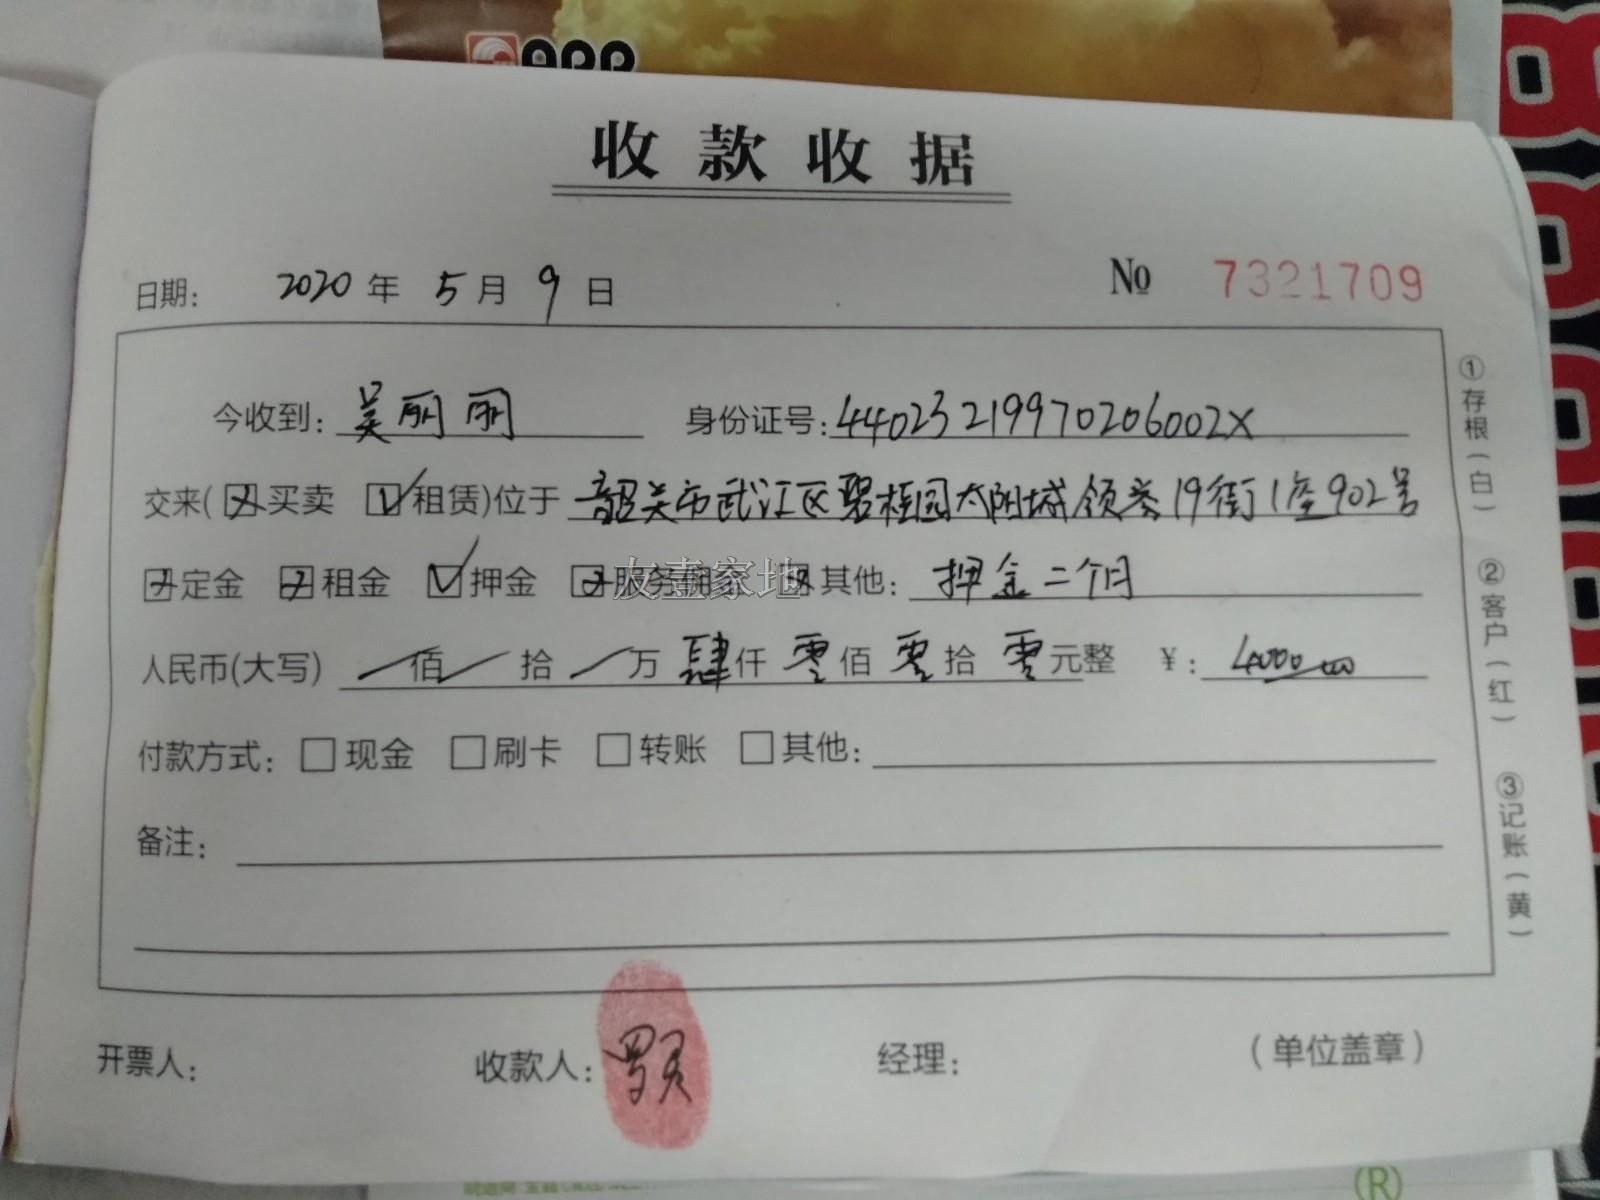 APP
收款收据
日期: 2020年5月9日 № 7321709
今收到: 吴丽丽 身份证号: 44023219970206002X
交来(☒买卖 ☑租赁)位于 韶关市武江区碧桂园太阳城领誉19街1座902号
☒定金 ☒租金 ☑押金 ☒服务佣金 ☒其他: 押金二个月
友壹家地
人民币(大写) 佰 拾 万 肆仟零佰零拾零元整 ¥: 4000.00
付款方式: □现金 □刷卡 □转账 □其他:
备注:
开票人: 收款人: 经理: (单位盖章)
①存根(白)
②客户(红)
③记账(黄)
(R)